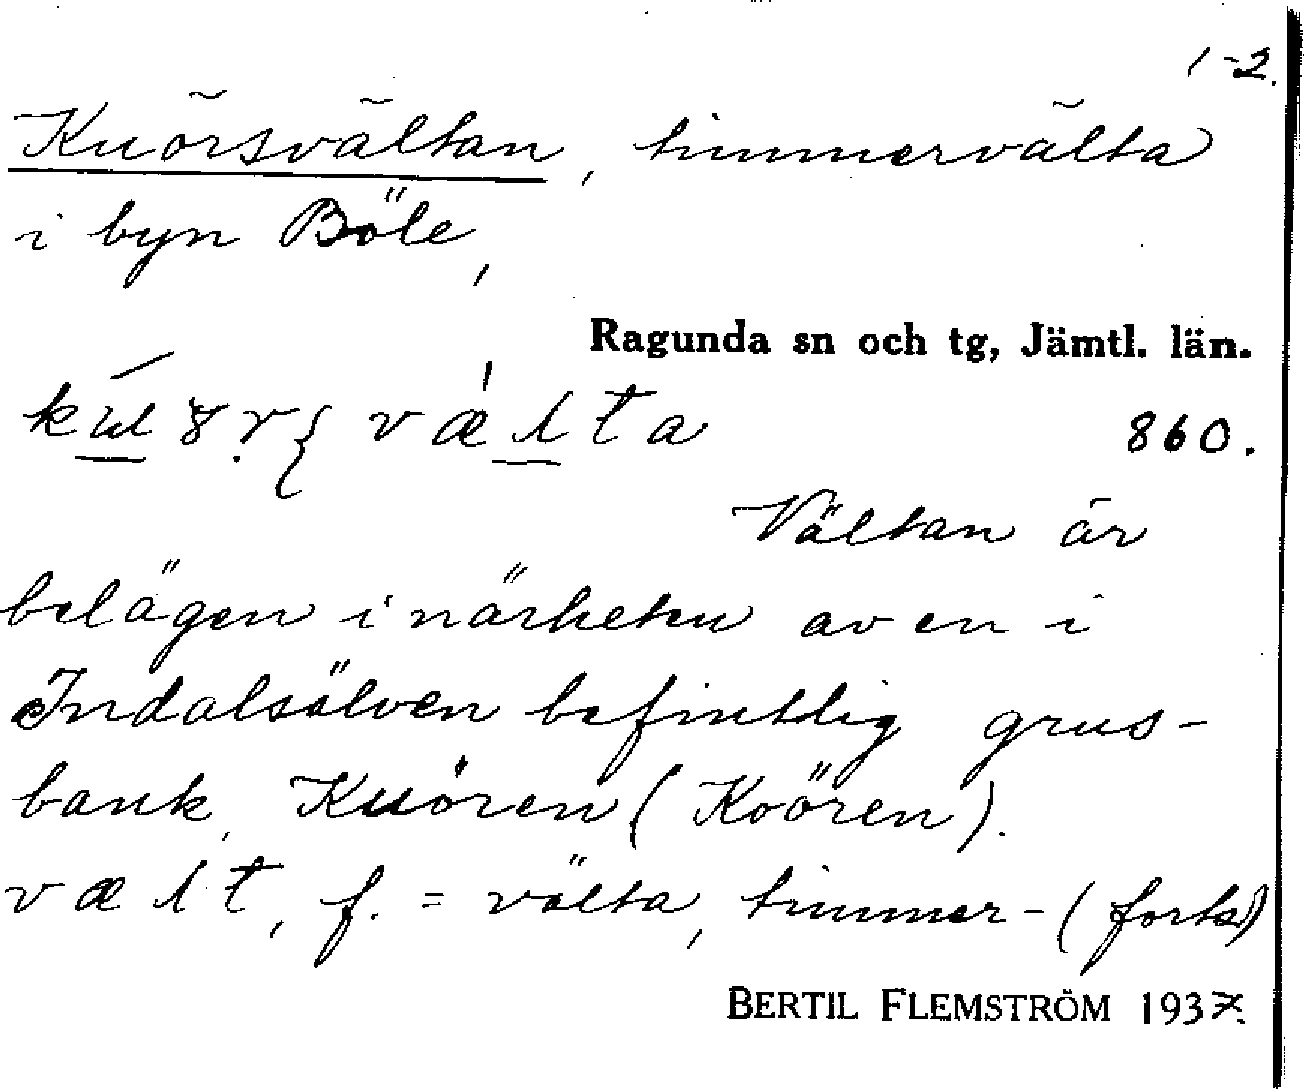 1-2.
Kuörsvältan, timmervälta
i byn Böle,
Ragunda sn och tg, Jämtl. län.
860.
Vältan är
belägen i närheten av en i
Indalsälven befintlig grus-
bank, Kuören (Koören).
vælt, f. = välta, timmer- (forts)
BERTIL FLEMSTRÖM 1937.